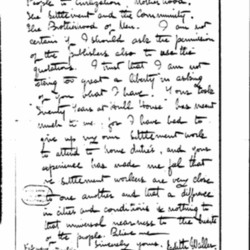 People to Civilization, Motherhood,
The Settlement and the Community,
The Brotherhood of Men. I am not
certain if I should ask the permission
of the publishers also to use the
quotations. I trust that I am not
taking too great a liberty in asking
of you what I have. Your book
Twenty Years at Hull House has meant
much to me, for I have had to
give up my own settlement work
to attend to home duties, and your
experience has made me feel that
settlement workers are very close
to one another and that difference
in cities and conditions is nothing to
that universal nearness to the hearts
of the people. Believe me
Sincerely yours, Edith Miller